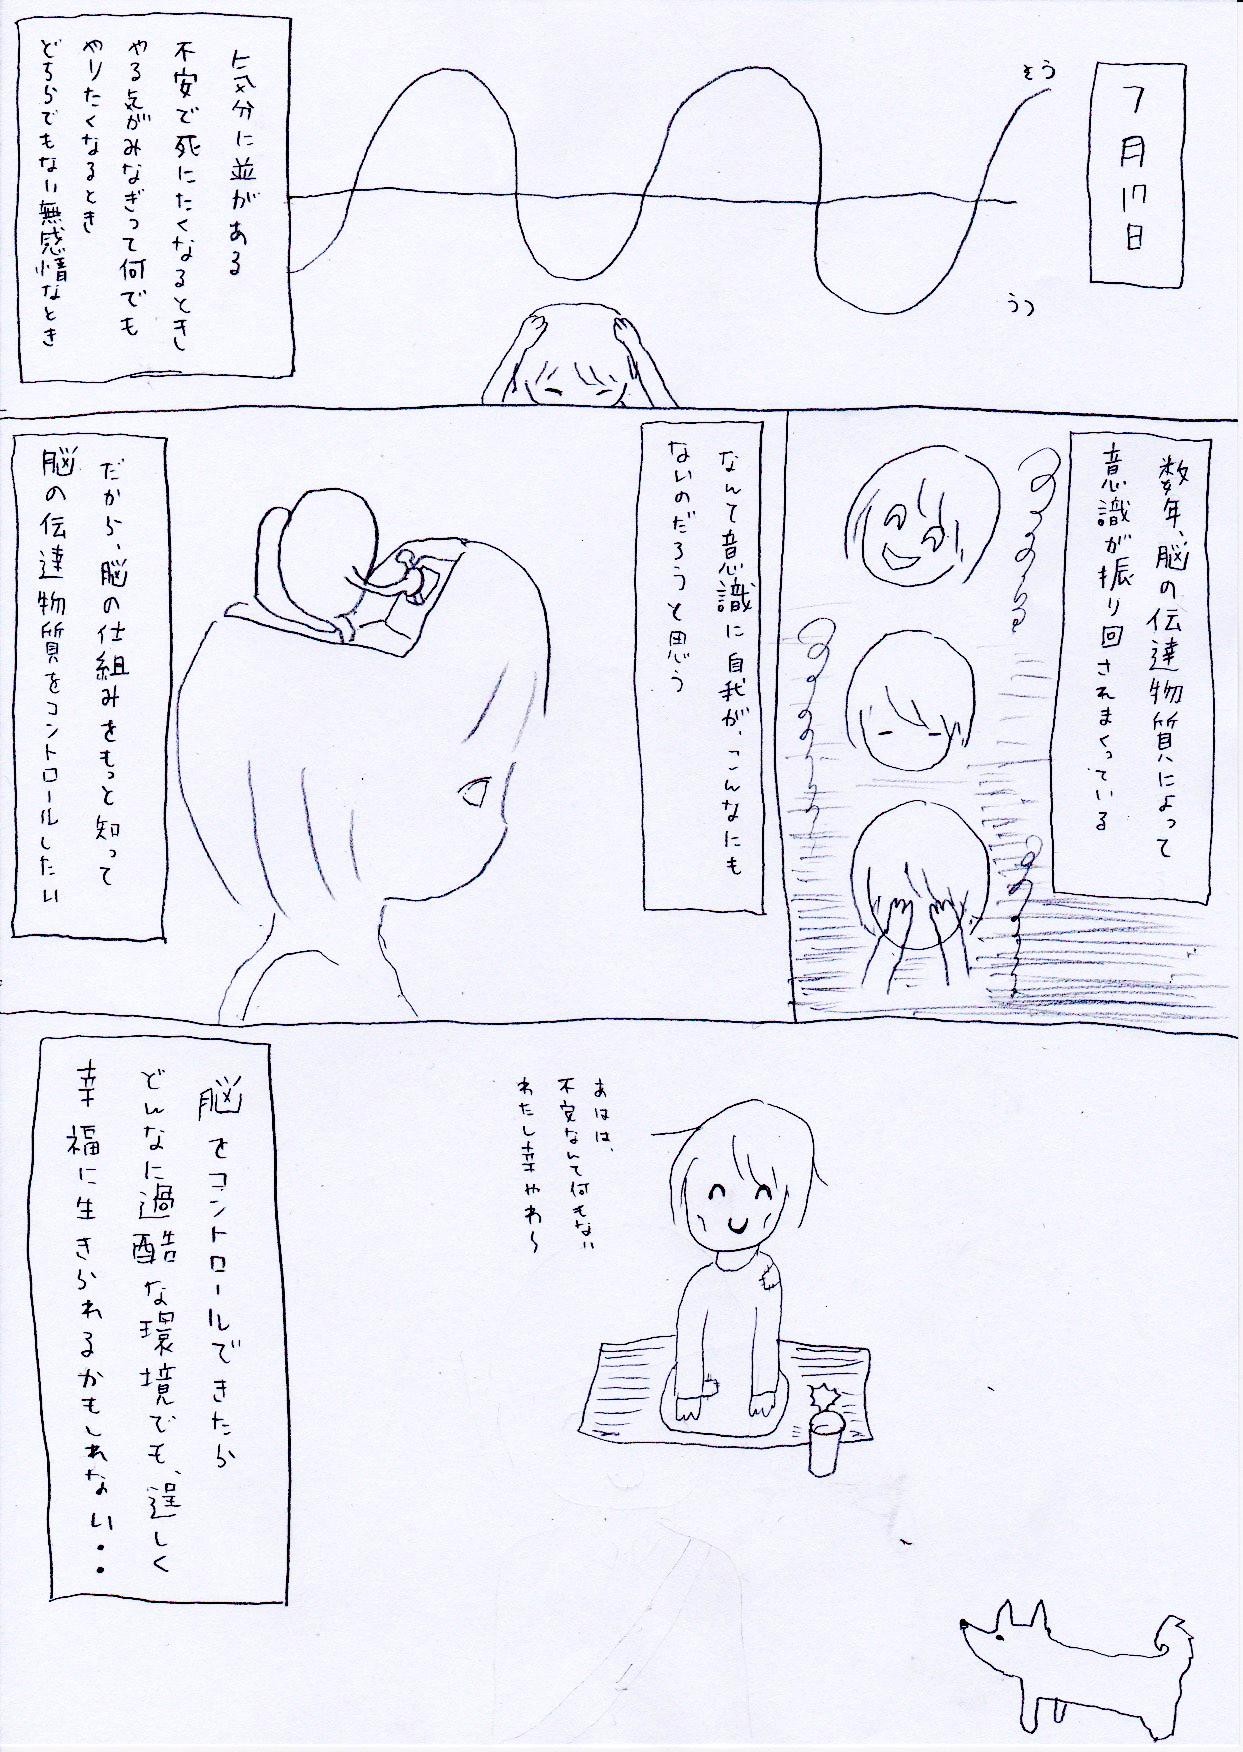 7月17日
そう
うつ
気分に並がある
不安で死にたくなるときし
やる気がみなぎって何でも
やりたくなるとき
どちらでもない無感情なとき
数年、脳の伝達物質によって
意識が振り回されまくっている
なんて意識に自我が、こんなにも
ないのだろうと思う
だから、脳の仕組みをもっと知って
脳の伝達物質をコントロールしたい
あはは、
不安なんて何もない
わたし幸やわ〜
脳をコントロールできたら
どんなに過酷な環境でも、逞しく
幸福に生きられるかもしれない・・